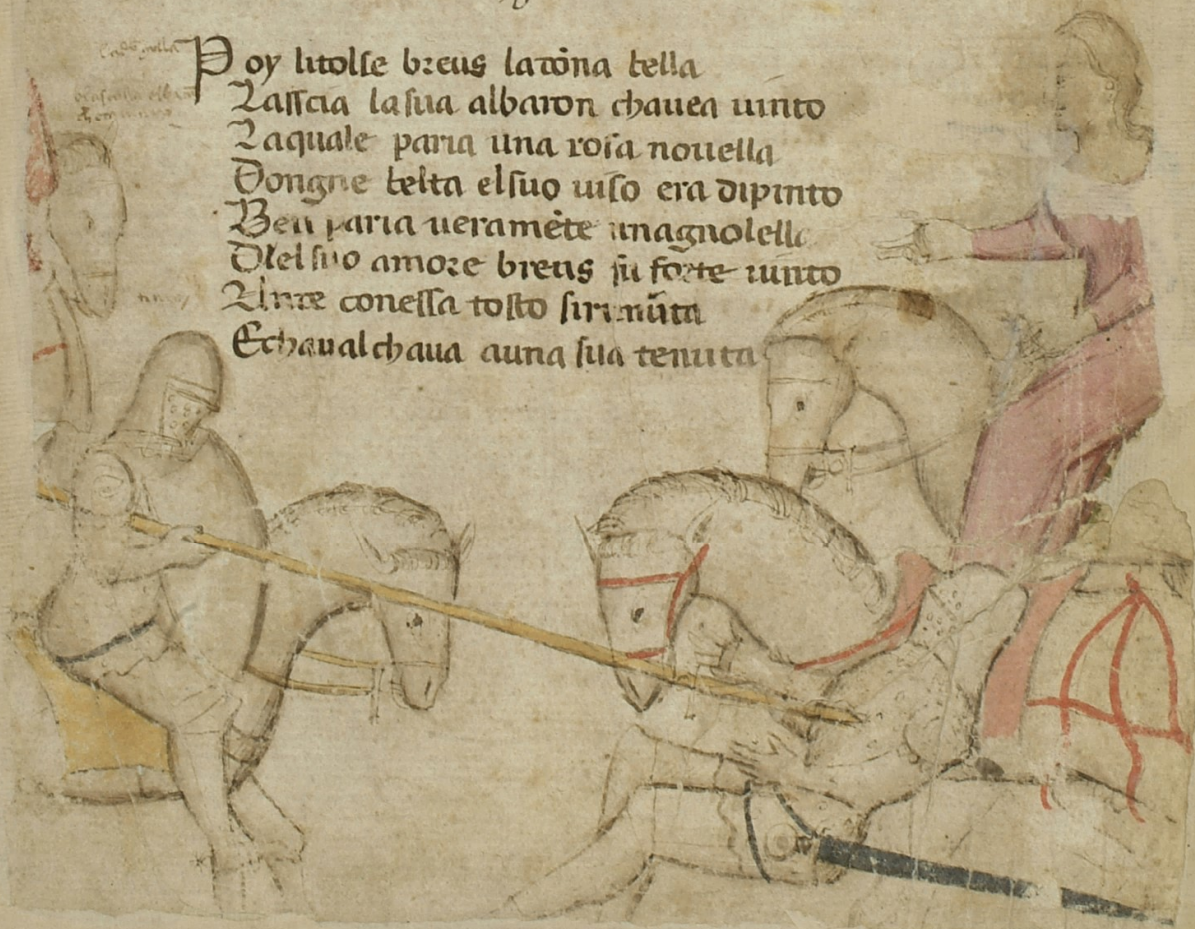 Poy litolse breus ladōna bella
Lasscia lasua albaron chauea uinto
Laquale paria una rosa nouella
Dongne belta elsuo uiso era dipinto
Ben paria veramēte unagnolella
Del suo amore breus fu forte uinto
conessa tosto
Echaualchaua auna sua tenuta